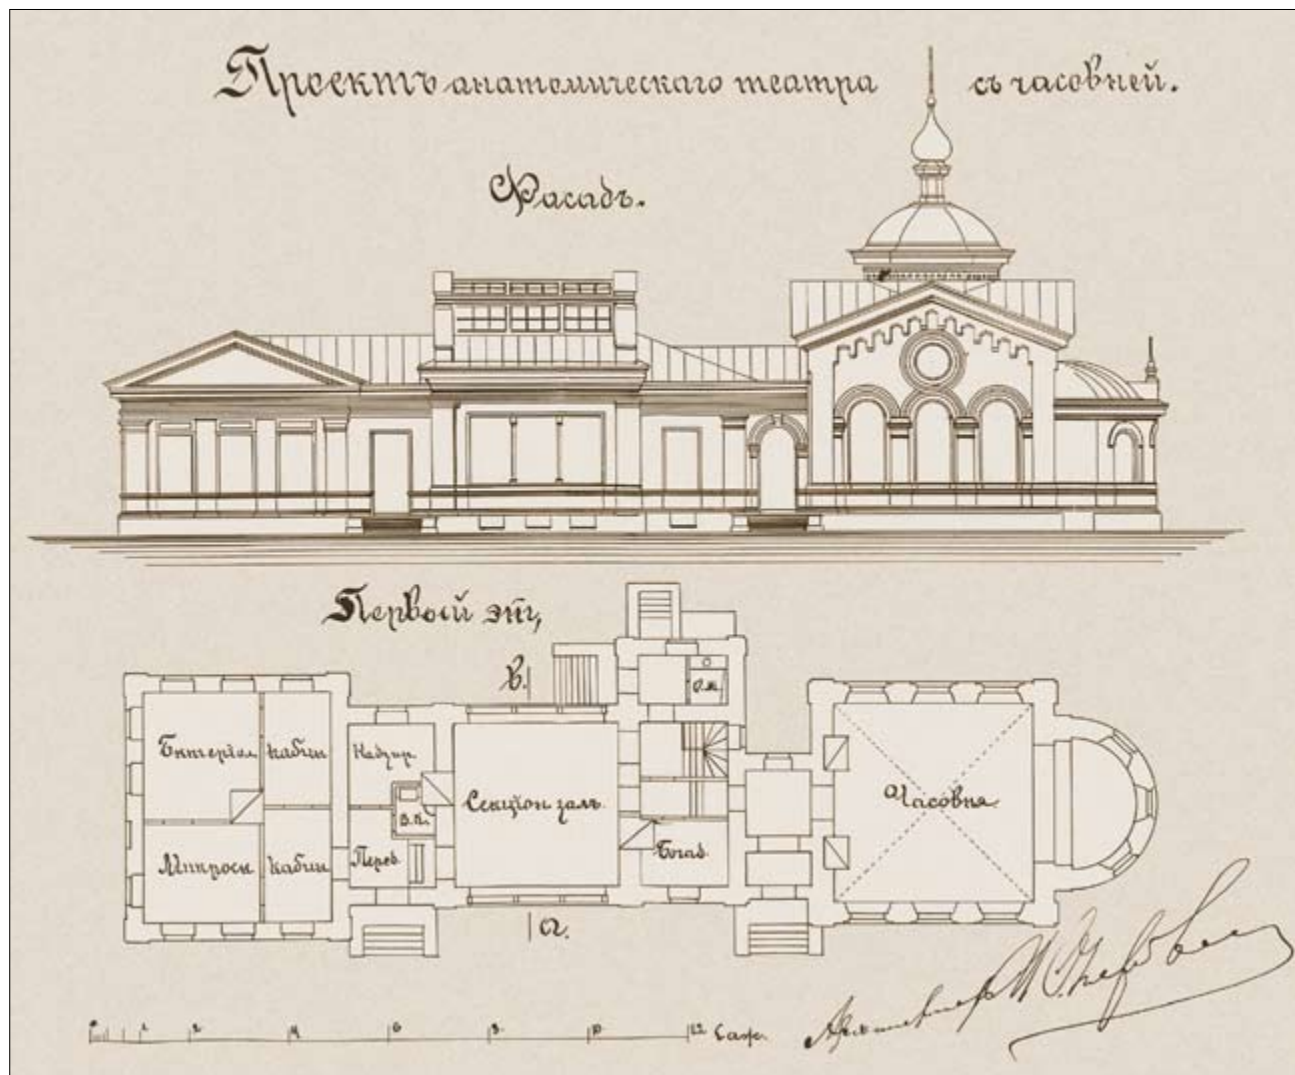 Проектъ анатомическаго театра съ часовней.
Фасадъ.
Первый эт,
в.
О.К.
Бактеріол. кабин Надзир.
Секціон залъ.
Часовня
В.К.
Микроск кабин Перев.
а.
0 1 2 4 6 8 10 12 Саж.
Архитекторъ